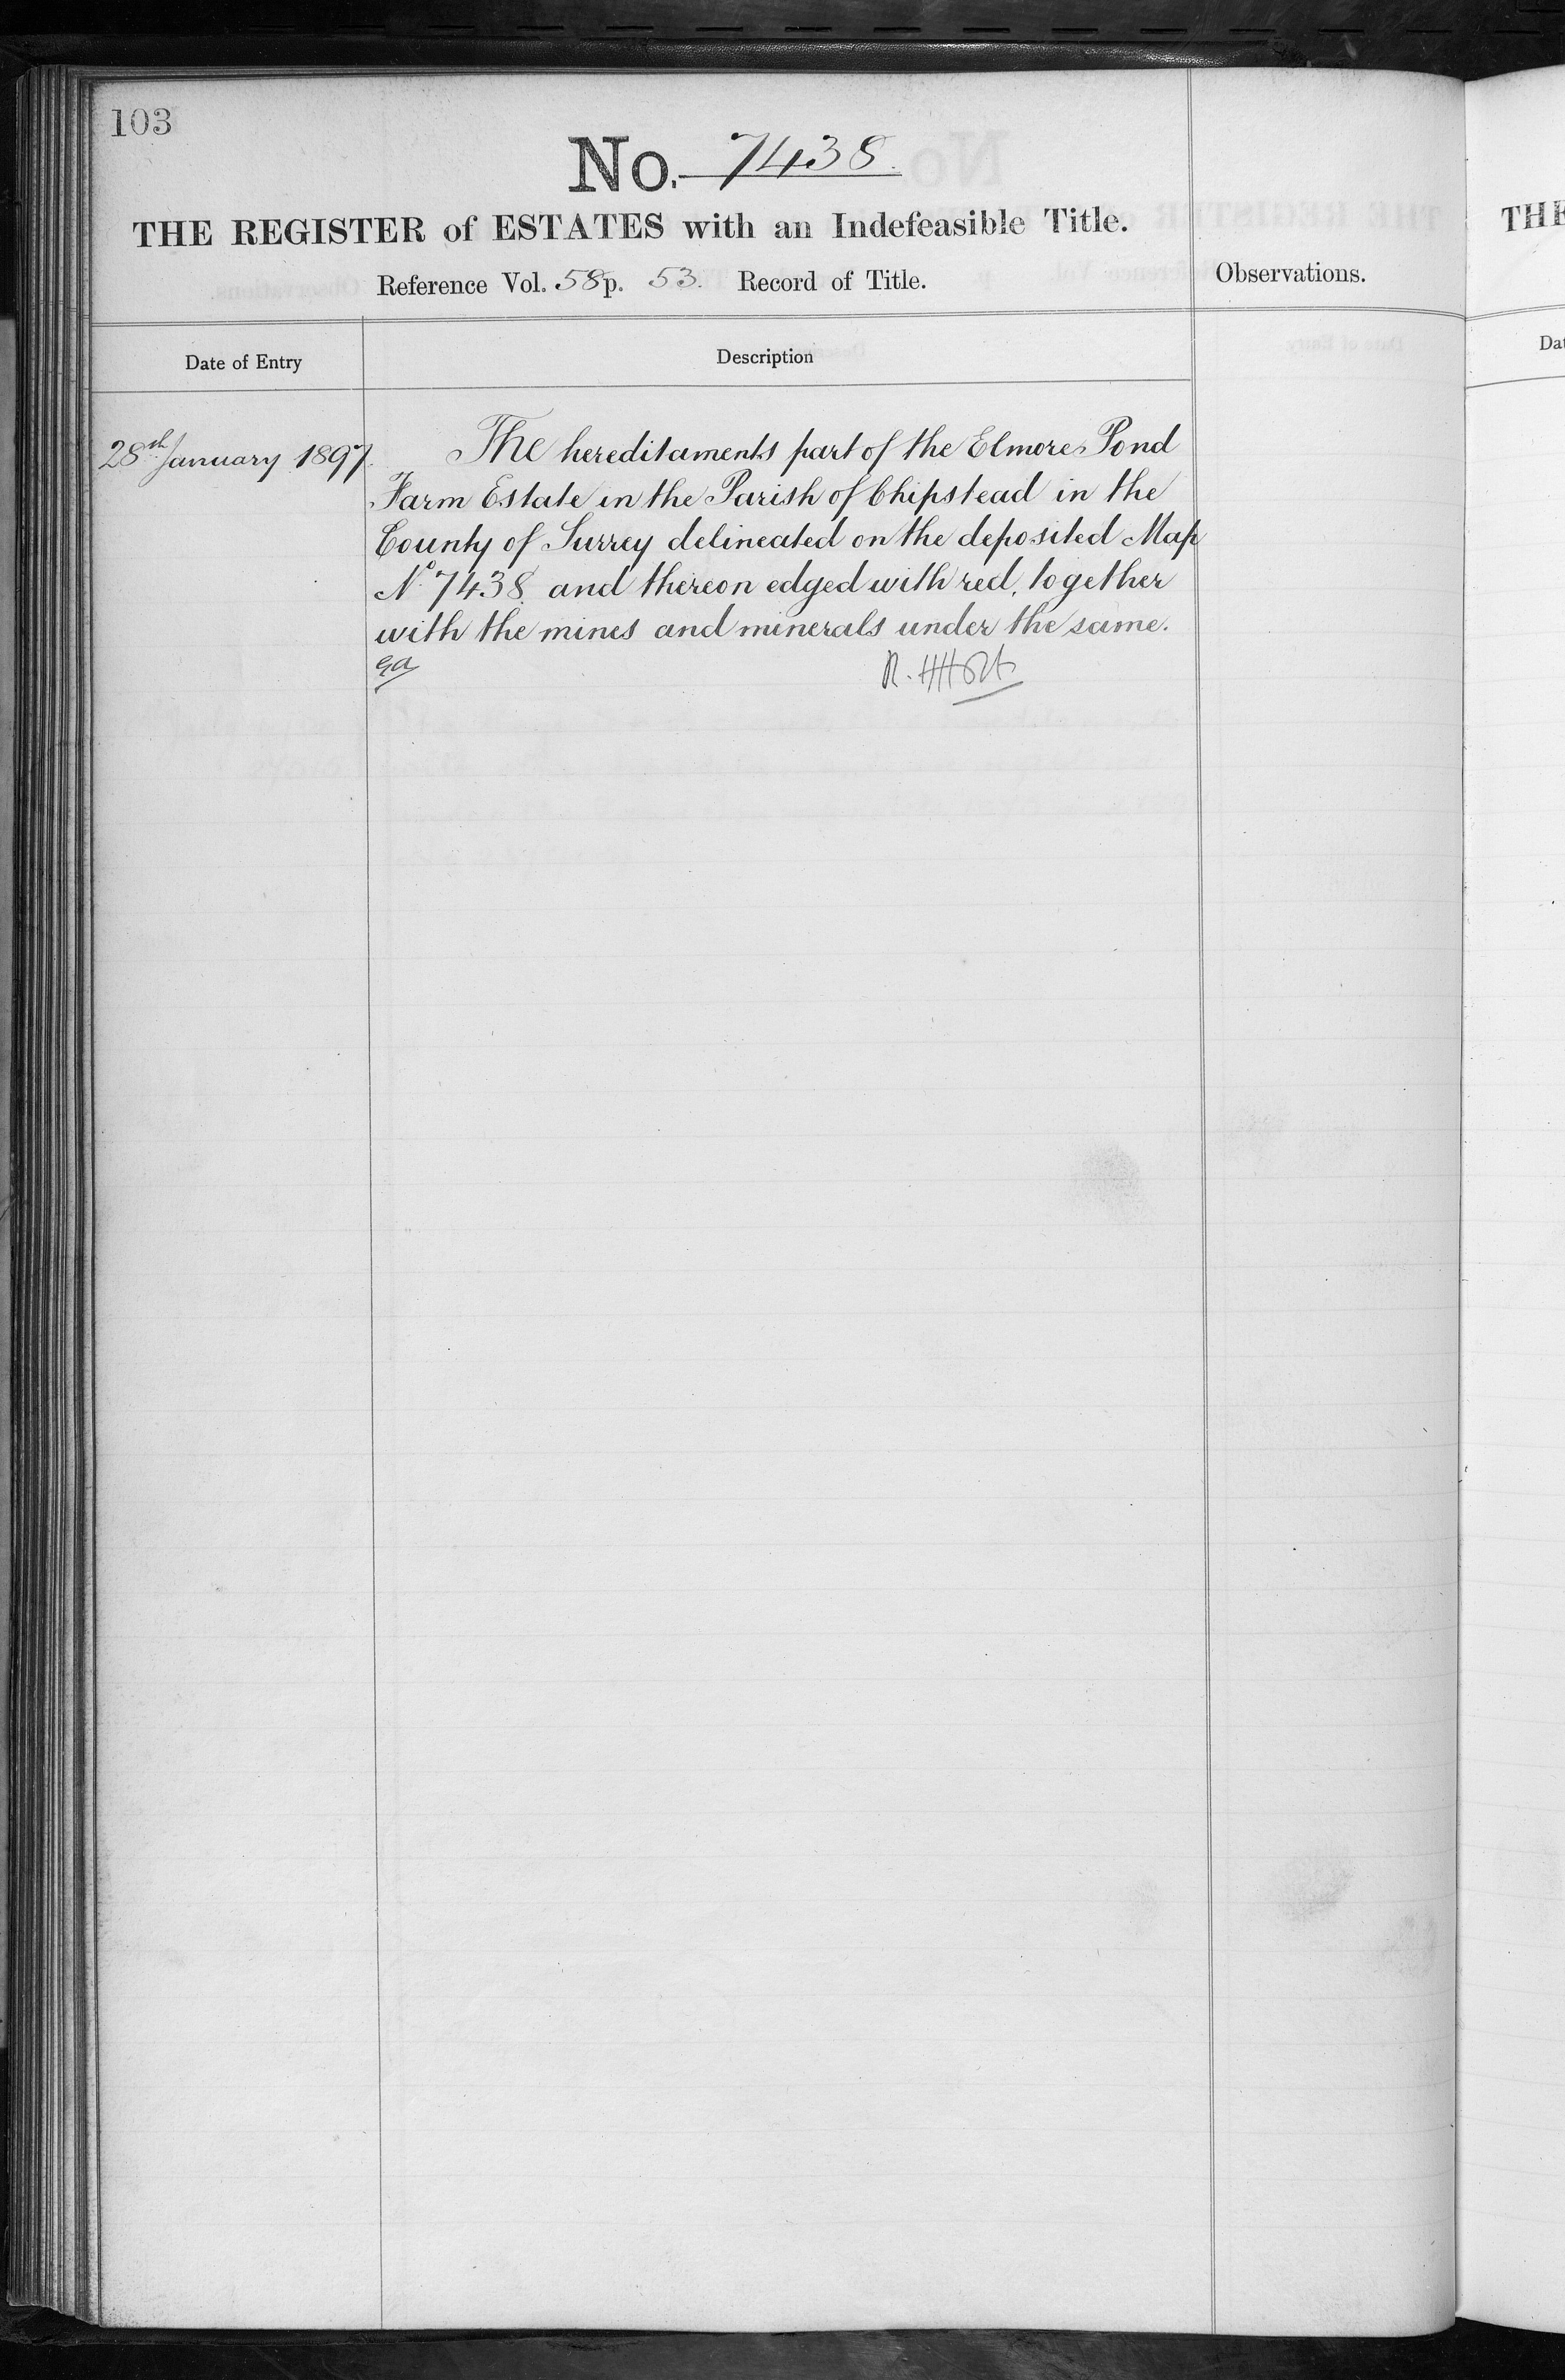 103
No. 7438.
THE REGISTER of ESTATES with an Indefeasible Title.
Reference Vol. 58 p. 53. Record of Title.
Observations.
Date of Entry
Description
28th January 1897.
The hereditaments part of the Elmore Pond
Farm Estate in the Parish of Chipstead in the
County of Surrey delineated on the deposited Map
No 7438. and thereon edged with red, together
with the mines and minerals under the same.
THE
Dat